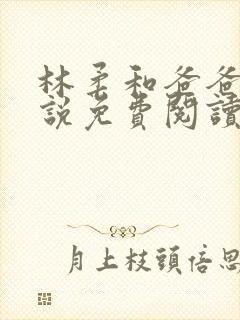 林柔和爸爸
說免費閱讀
月上枝頭倍思